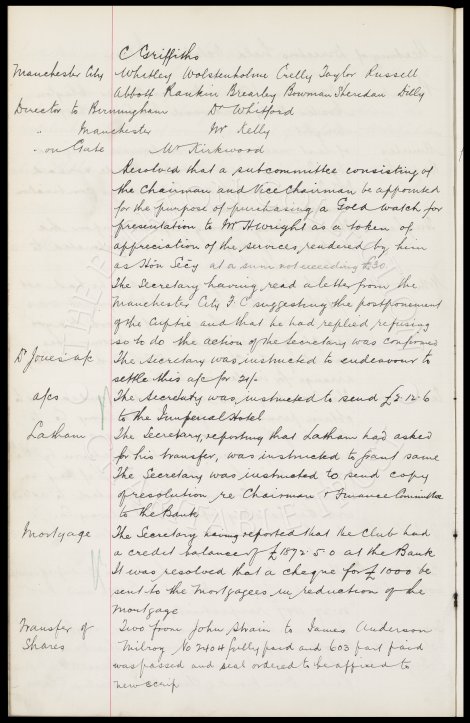 C Griffiths
Manchester City Whitley Wolstenholme Crelly Taylor Russell
Abbott Rankin Brearley Bowman Sheridan Dilly
Director to Birmingham Dr Whitford
" Manchester Mr Kelly
" on Gate Mr Kirkwood
Resolved that a subcommittee consisting of
the Chairman and Vice Chairman be appointed
for the purpose of purchasing a Gold Watch for
presentation to Mr H Wright as a token of
appreciation of the services rendered by him
as Hon Secy at a sum not exceeding £30
The Secretary having read a letter from the
Manchester City F.C. suggesting the postponement
of the Cuptie and that he had replied refusing
so to do the action of the Secretary was confirmed
Dr Jones a/c The Secretary was instructed to endeavour to
settle this a/c for 21/-
a/cs The Secretary was instructed to send £2.12.6
to the Imperial Hotel
Latham The Secretary, reporting that Latham had asked
for his transfer, was instructed to grant same
The Secretary was instructed to send copy
of resolution re Chairman & Finance Committee
to the Bank
Mortgage The Secretary having reported that the Club had
a credit balance of £1892.5.0 at the Bank
It was resolved that a cheque for £1000 be
sent to the Mortgagees in reduction of the
Mortgage
Transfer of Two from John Strain to James Anderson
Shares Milroy No 2404 fully paid and 603 part paid
was passed and seal ordered to be affixed to
new scrip